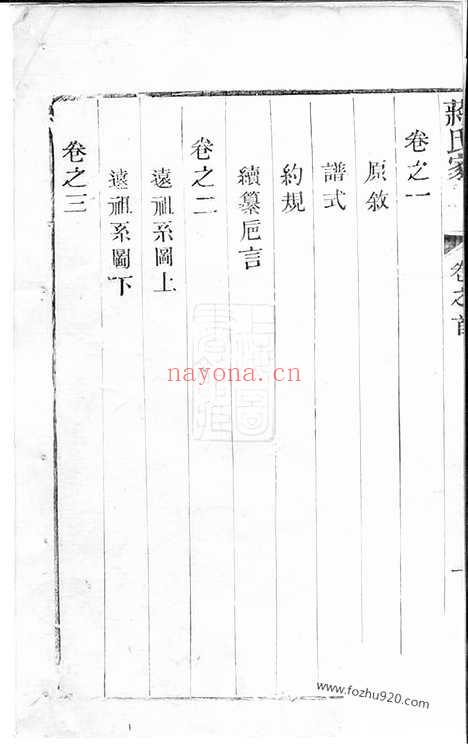 蔣氏家
卷之首
一
卷之一
原敘
譜式
約規
續纂巵言
卷之二
遠祖系圖上
遠祖系圖下
卷之三
nayona.cn
www.fozhu920.com